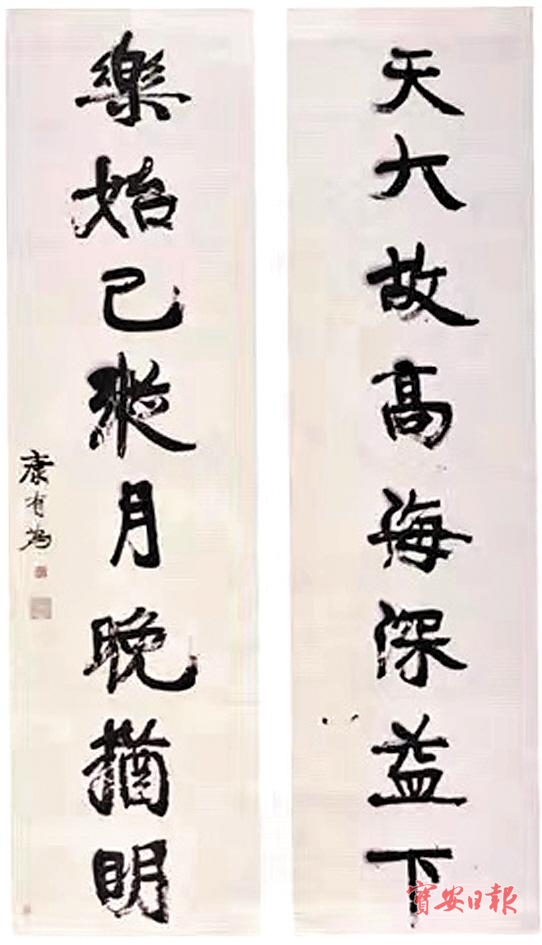 天大故高海深益下
樂始已月晚猶明
康有為
寶安日報